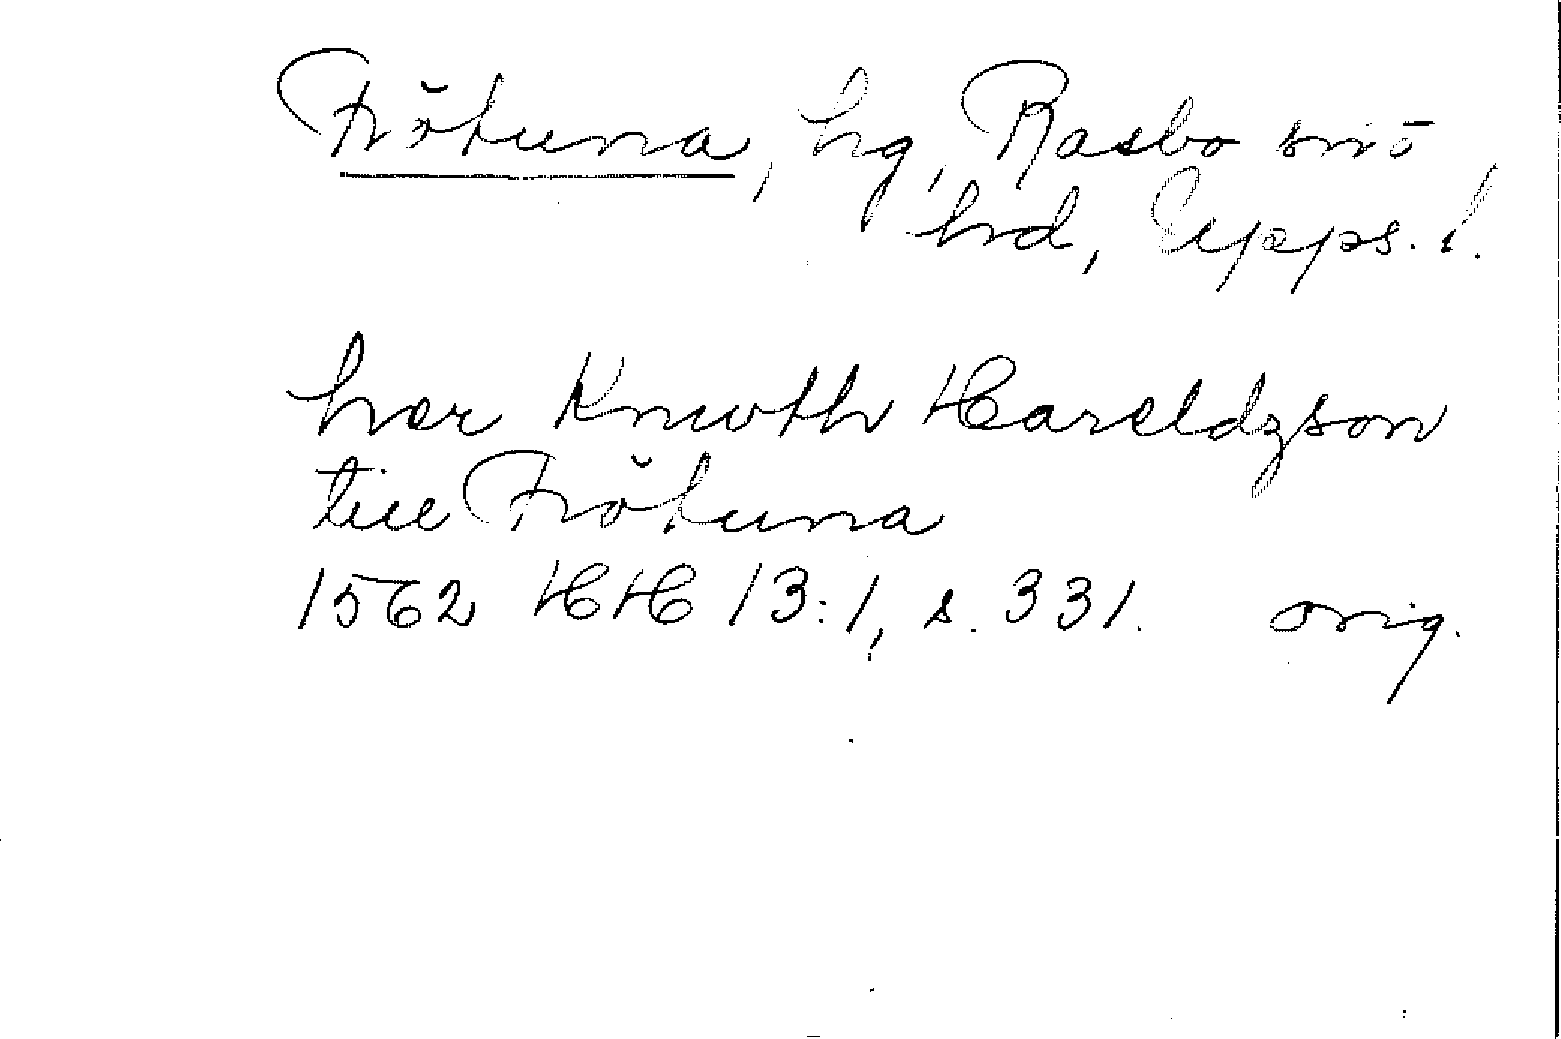 Frötuna, hg, Rasbo sn o
hrd, Upps. l.
her Knwth Hareldzson
till Frötuna
1562 HH 13:1, s. 331. orig.